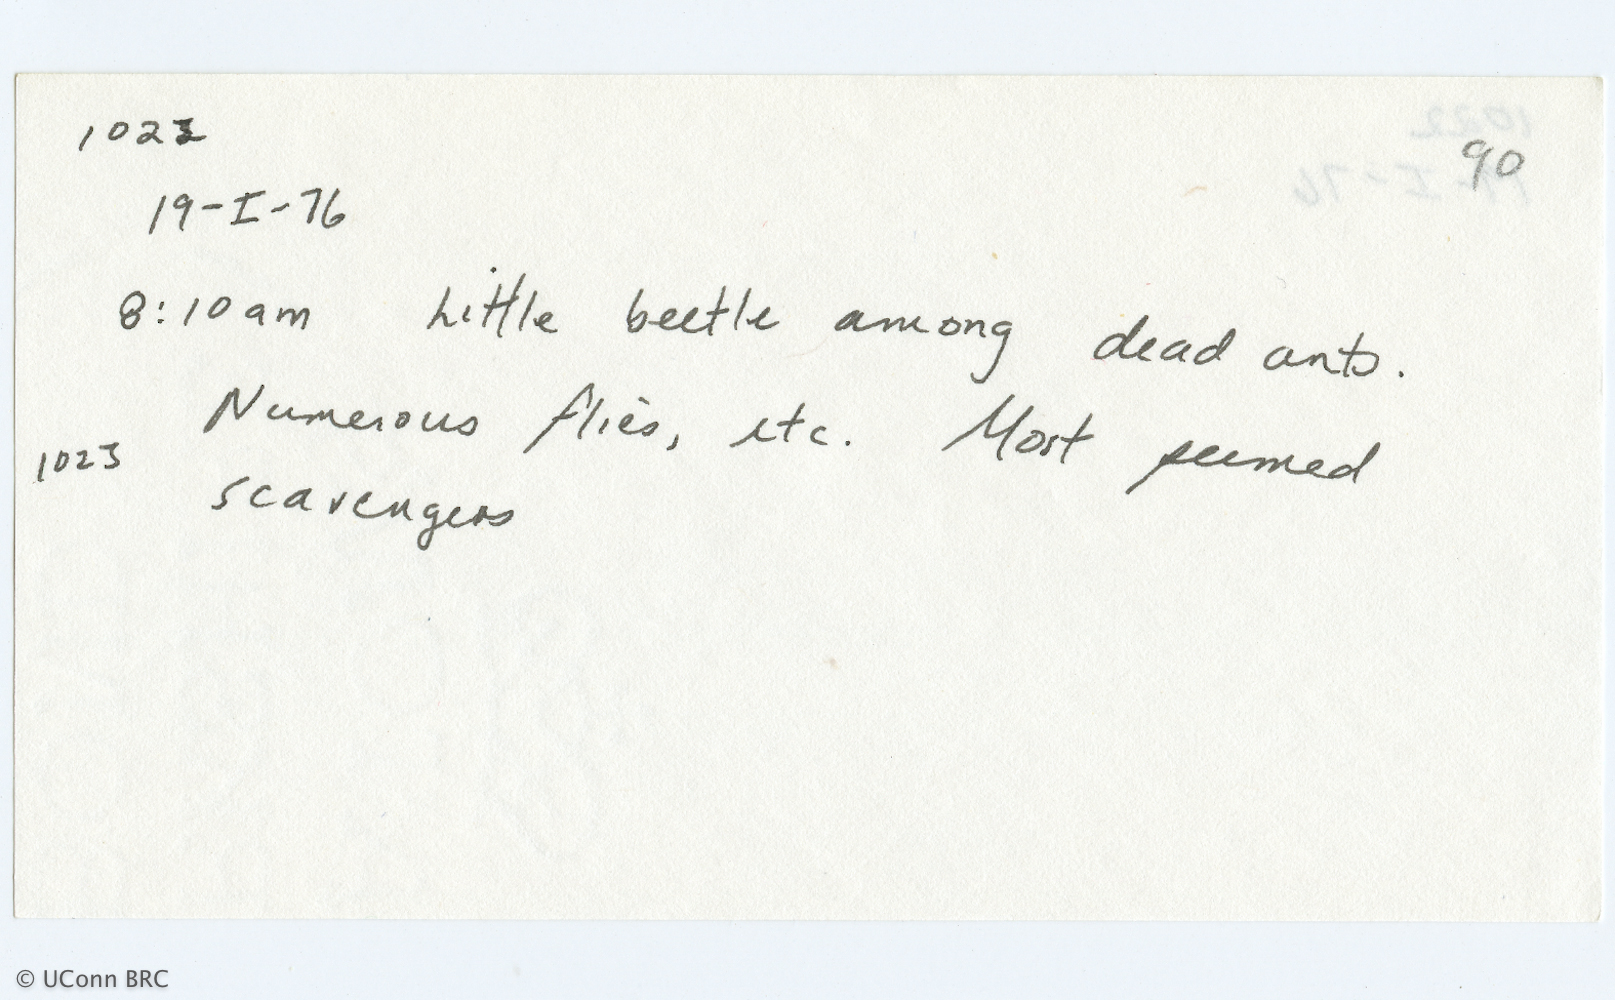 1022
90
19-I-76
8:10am Little beetle among dead ants.
Numerous flies, etc. Most seemed
1023
scavengers
© UConn BRC